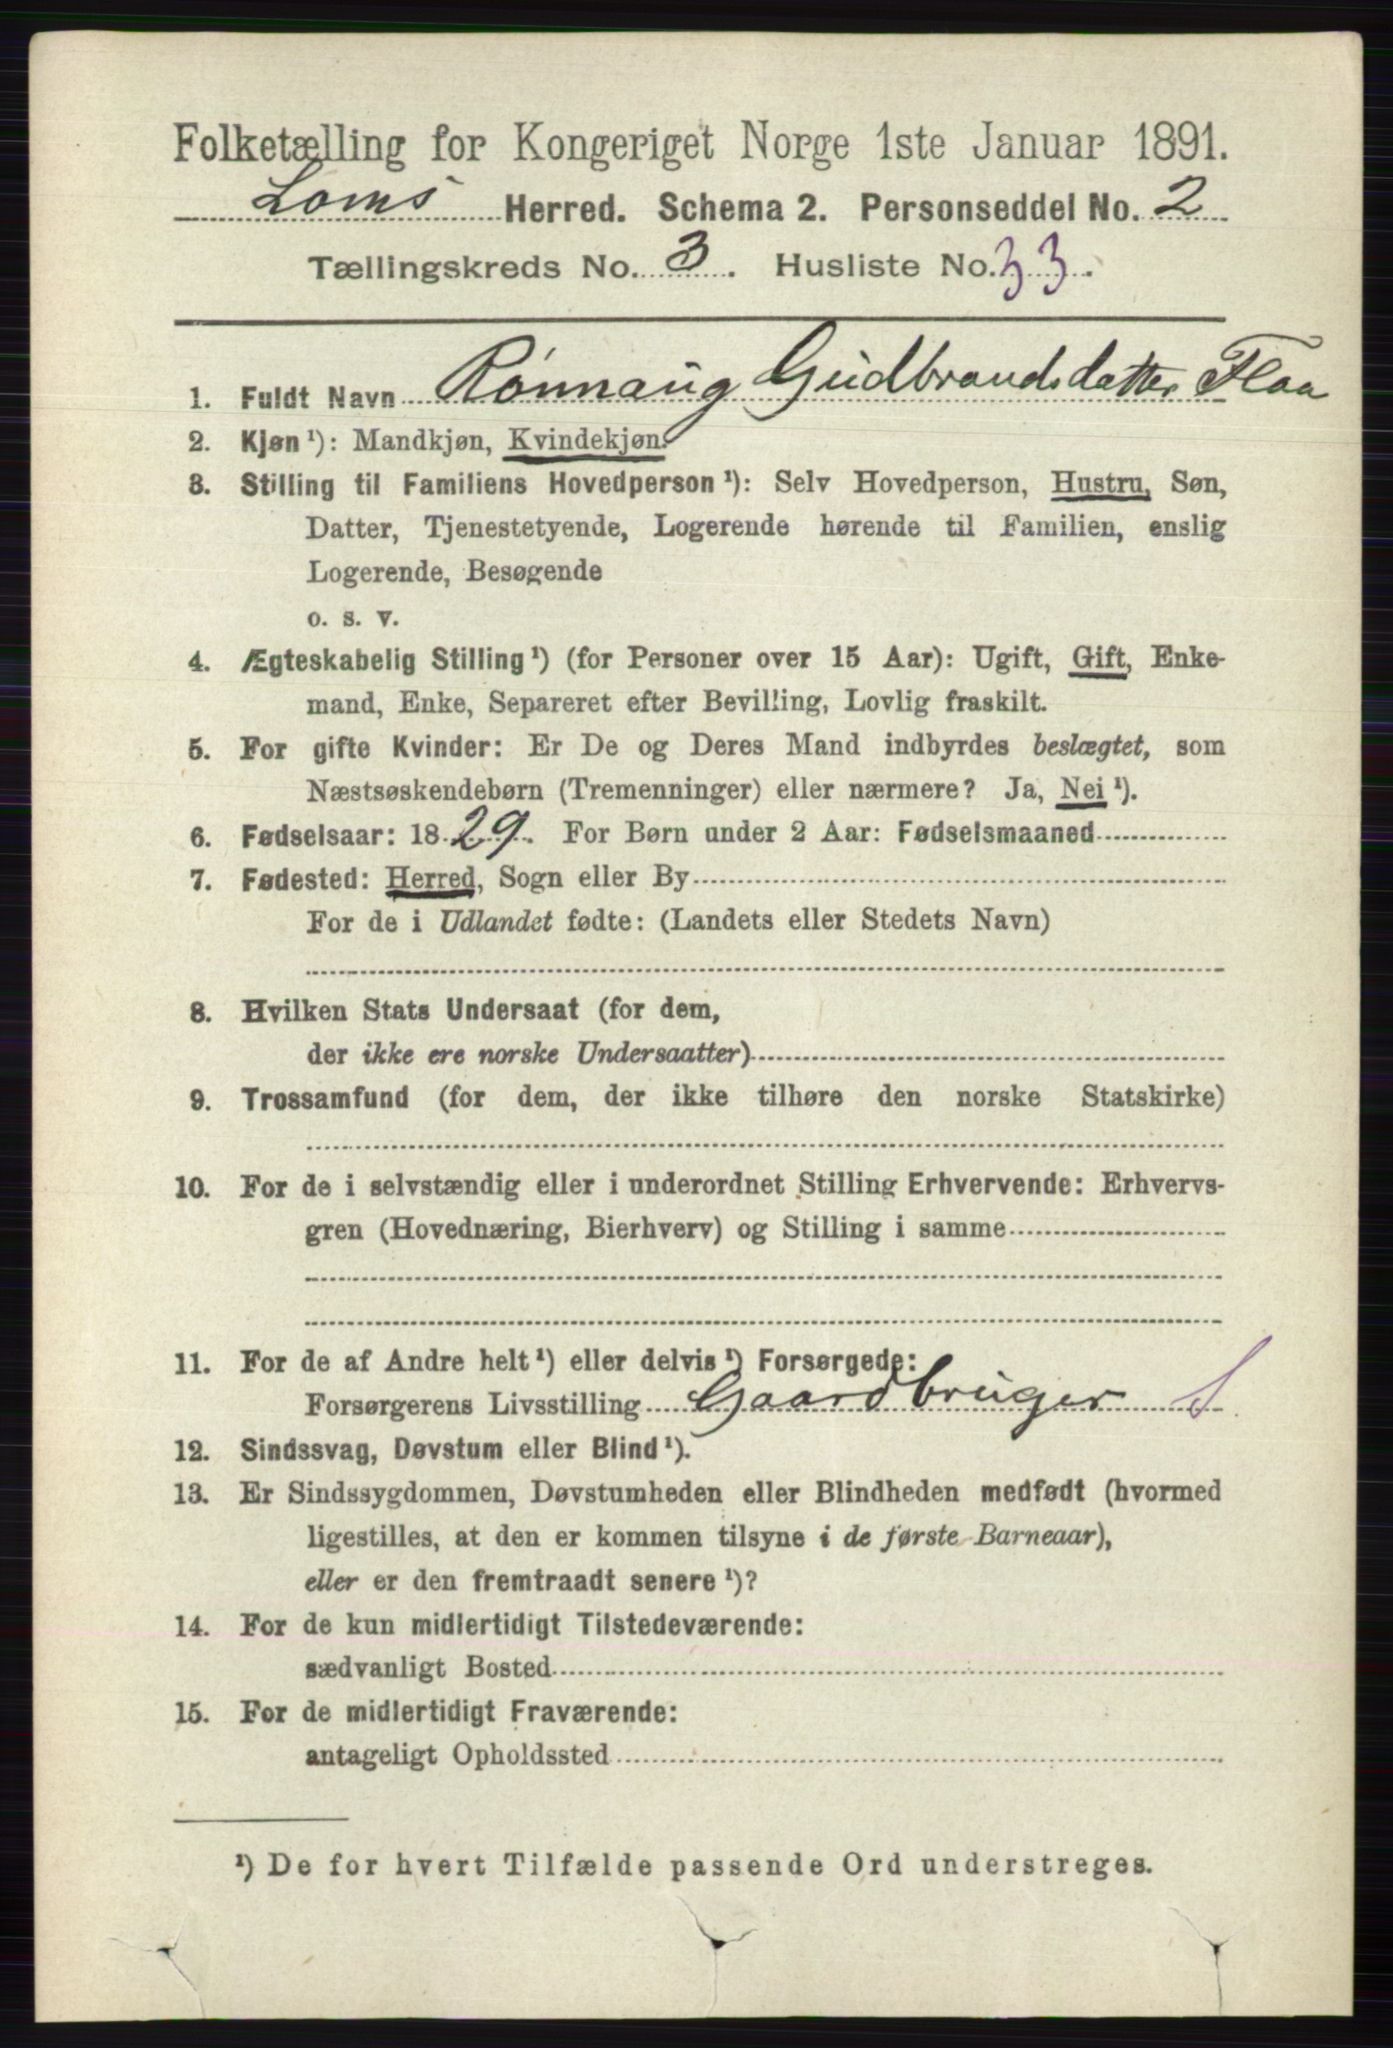 Folketælling for Kongeriget Norge 1ste Januar 1891.
Loms Herred. Schema 2. Personseddel No. 2
Tællingskreds No. 3. Husliste No. 33.
1. Fuldt Navn Rönnaug Gudbrandsdatter Flaa
2. Kjøn ¹): Mandkjøn, Kvindekjøn.
3. Stilling til Familiens Hovedperson ¹): Selv Hovedperson, Hustru, Søn,
Datter, Tjenestetyende, Logerende hørende til Familien, enslig
Logerende, Besøgende
o. s. v.
4. Ægteskabelig Stilling ¹) (for Personer over 15 Aar): Ugift, Gift, Enke-
mand, Enke, Separeret efter Bevilling, Lovlig fraskilt.
5. For gifte Kvinder: Er De og Deres Mand indbyrdes beslægtet, som
Næstsøskendebørn (Tremenninger) eller nærmere? Ja, Nei ¹).
6. Fødselsaar: 1829. For Børn under 2 Aar: Fødselsmaaned
7. Fødested: Herred, Sogn eller By
For de i Udlandet fødte: (Landets eller Stedets Navn)
8. Hvilken Stats Undersaat (for dem,
der ikke ere norske Undersaatter)
9. Trossamfund (for dem, der ikke tilhøre den norske Statskirke)
10. For de i selvstændig eller i underordnet Stilling Erhvervende: Erhvervs-
gren (Hovednæring, Bierhverv) og Stilling i samme
11. For de af Andre helt ¹) eller delvis ¹) Forsørgede:
Forsørgerens Livsstilling Gaardbruger S
12. Sindssvag, Døvstum eller Blind ¹).
13. Er Sindssygdommen, Døvstumheden eller Blindheden medfødt (hvormed
ligestilles, at den er kommen tilsyne i de første Barneaar),
eller er den fremtraadt senere ¹)?
14. For de kun midlertidigt Tilstedeværende:
sædvanligt Bosted
15. For de midlertidigt Fraværende:
antageligt Opholdssted
¹) De for hvert Tilfælde passende Ord understreges.